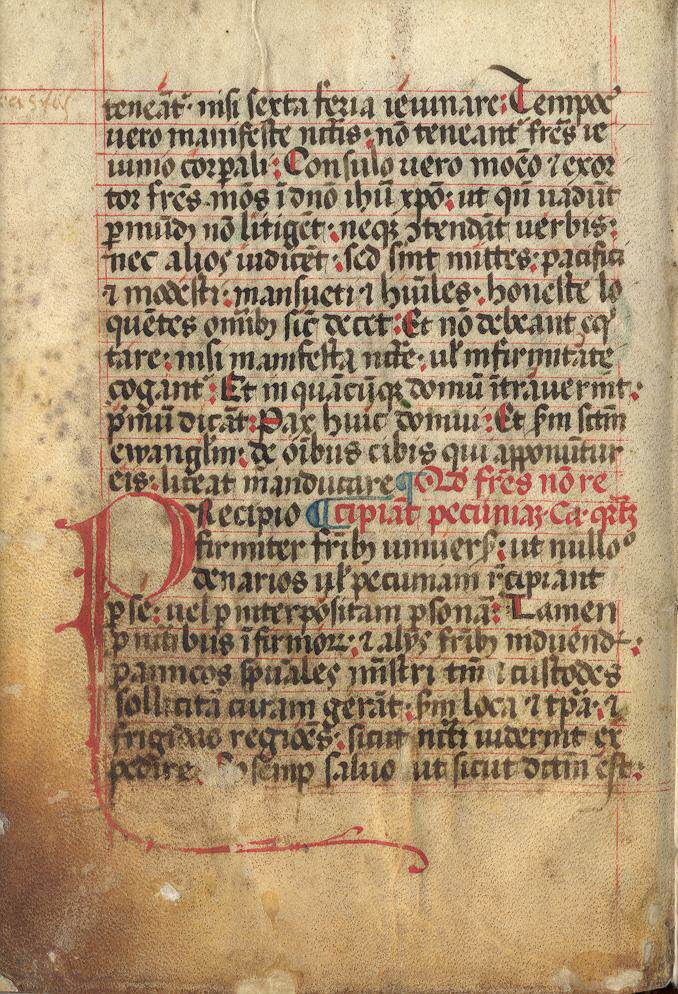 teneāt᷑· nisi sexta feria ieiunare: Tempore
uero manifeste nc̄tis· nō teneant᷑ fr̄es ie
iunio corꝑali: Consulo uero moneo ⁊ exor
tor fr̄es mōs ī dn̄o ihū xp̄o: ut qn̄ uadūt
ꝑ mūdū nō litigēt· neqꝫ ꝯtendāt uerbis:
nec alios iudicēt· sed sint mittes· pacifici
⁊ modesti· mansueti ⁊ hūiles· honeste lo
quētes omībꝫ sic̄ decet: Et nō debeant eq̇
tare· nisi manifesta nc̄te· ul̄ infirmitate
cogant᷑: Et in quācūqꝫ domū ītrauerint:
pͥmū dicāt: Pax huic domui: Et scd̄m sc̄tm
ewangl̄m· de ōibus cibis qui apponūtur
eis· liceat manducare ¶ Qd̄ fr̄es nō re
Recipio ¶ cipiāt pecuniaꝫ Ca. qͣrtꝫ
P firmiter fr̄ibꝫ uniuers̄· ut nulloº
denarios ul̄ pecuniam rēcipiant
ꝑ se· uel ꝑ interpositam ꝑsonā: Tamen
ꝓ nc̄itibus īfirmoꝝ· ⁊ alijs fr̄ibꝫ induend̄·
ꝑ amicos spūales· mīstri tm̄ ⁊ custodes
sollicitā curam gerāt· scd̄m loca ⁊ tp̄a· ⁊
frigidas regiōes· sicut nc̄ti uiderint ex
pedire semꝑ saluo ut sicut dictm̄ est: